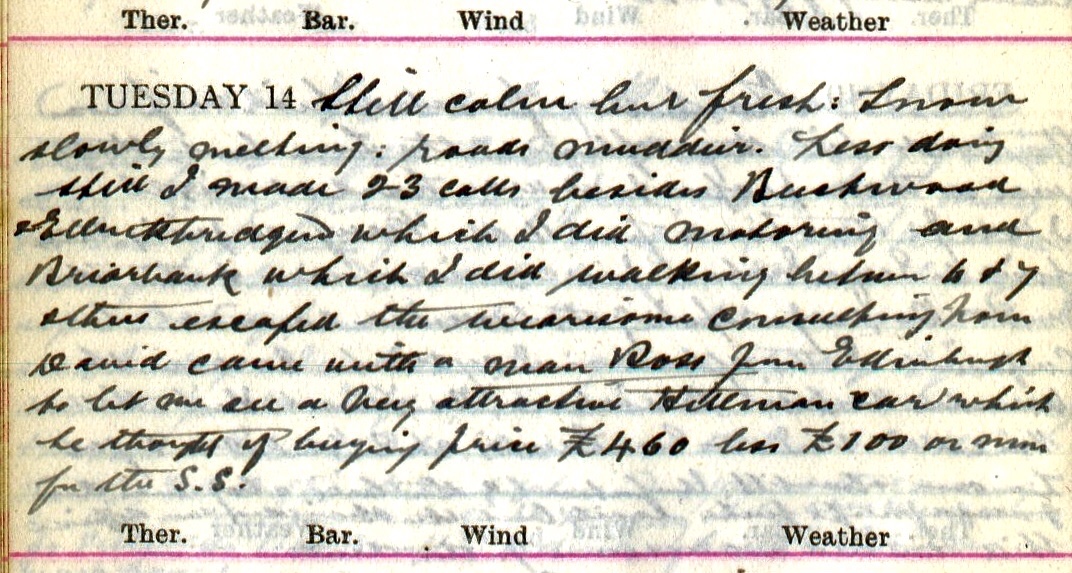 Ther. Bar. Wind Weather
TUESDAY 14 Still calm but fresh: Snow
slowly melting: roads muddier. Less doing
still I made 23 calls besides Bushwood
& which I did motoring and
Briarbank which I did walking between 6 & 7
thus escaped the wearisome consulting hour
David came with a man Ross from Edinburgh
to let me see a very attractive Hillman car which
he thought of buying price £460 less £100 or more
for the S.S.
Ther. Bar. Wind Weather